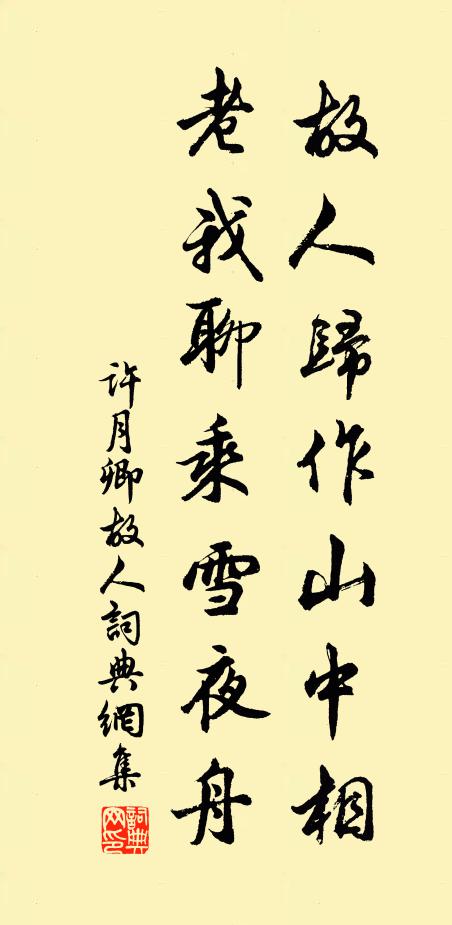 故人歸作山中相
老我聊乘雪夜舟
許月卿故人詞典網集
詞典网印